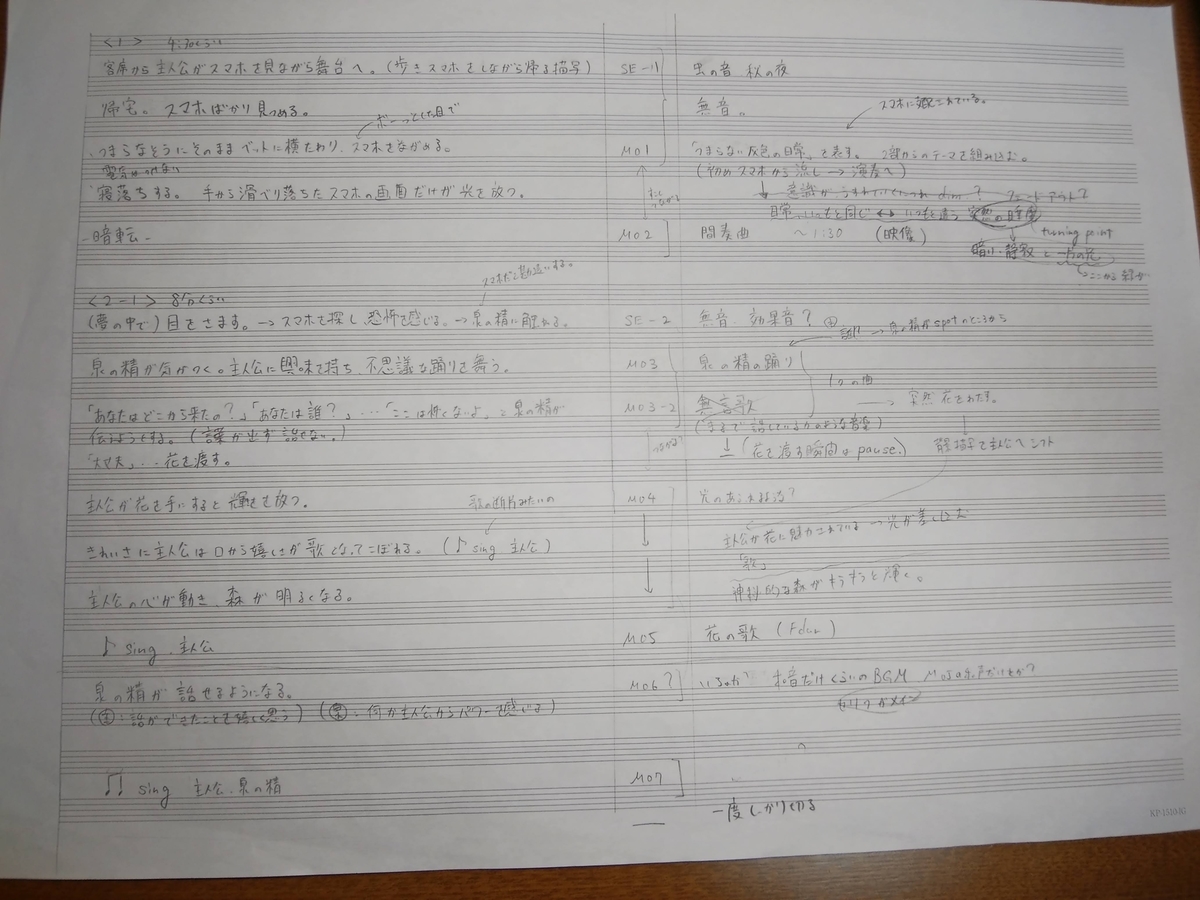 <1> 4:30くらい
客席から主人公がスマホを見ながら舞台へ。(歩きスマホをしながら帰る描写) SE-1 虫の音 秋の夜
帰宅。スマホばかり見つめる。 無音。
ボーっとした目で
スマホに支配されている。
つまらなそうにそのままベットに横たわり、スマホをながめる。 M01 「つまらない灰色の日常」を表す。 2部からのテーマを組み込む。
電気がつけない
(初めスマホから流し→演奏へ)
寝落ちする。 手から滑り落ちたスマホの画面だけが光を放つ。
意識がうすれていく dim.? フェードアウト?
日常 いつもと同じ ↔ いつもと違う
turning point
-暗転- M02 間奏曲 ~1:30 (映像)
暗い・静寂と一方の光
スマホだと勘違いする。
<2-1> 8分くらい
(夢の中で)目をさます。→スマホを探し、恐怖を感じる。→泉の精に触れる。 SE-2 無音、効果音?
→ 泉の精がspotのところから
泉の精が気がつく。主人公に興味を持ち、不思議な踊りを舞う。 M03 泉の精の踊り
1つの曲
「あなたはどこから来たの?」「あなたは誰?」…「ここは怖くないよ」と泉の精が M03-2 無言歌 → 突然花をわたす。
伝えようとする。(言葉が出ず話せない。) (まるで話しているかのような音型)
「大丈夫」… 花を渡す。 ↓ (花を渡す瞬間はpause.)
主人公へシフト
主人公が花を手にすると輝きを放つ。 M04 光のあらわれ方?
歌の断片みたいの
主人公が花に魅力されている→光が差し込む
きれいさに主人公は口から嬉しさが歌となってこぼれる。 (♪ sing 主人公)
「歌」
神秘的な森がキラキラと輝く。
主人公の心が動き、森が明るくなる。
♪ sing 主人公 M05 花の歌 (F dur)
泉の精が話せるようになる。 M06? いるのか? 和音だけくらいのBGM
(主:話ができたことを嬉しく思う) (泉:何か主人公からパワーを感じる) セリフがメイン
♫ sing 主人公、泉の精 M07
一度しっかり切る